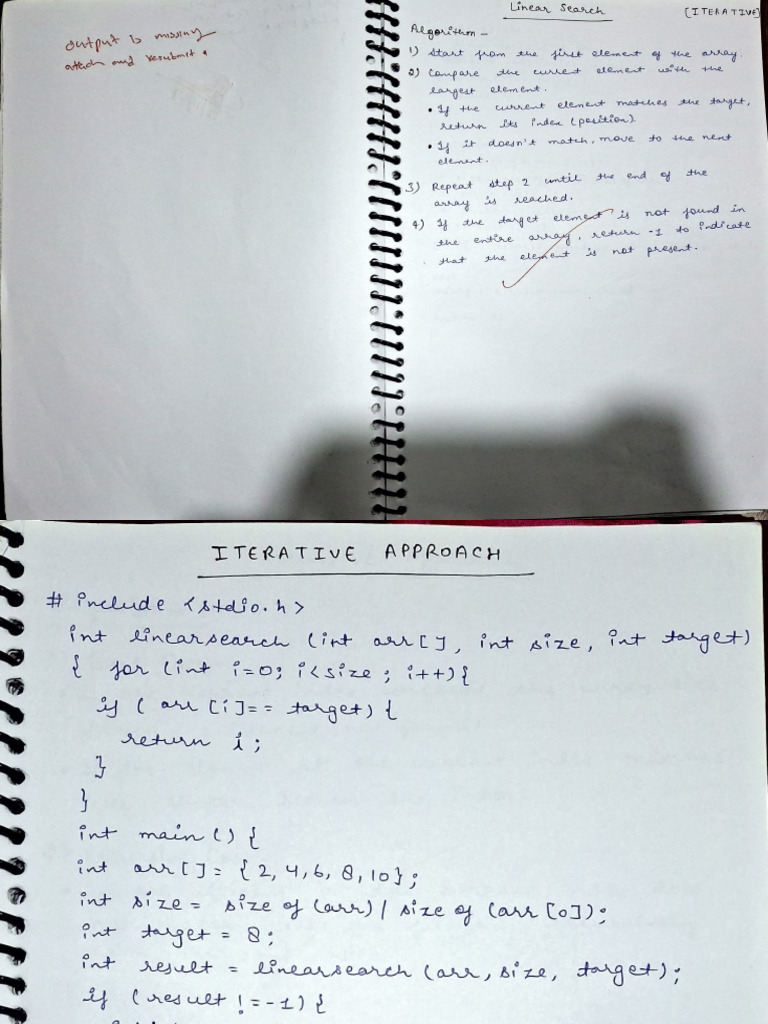 output is missing
attach and resubmit.
Linear Search [ITERATIVE]
Algorithm -
1) Start from the first element of the array.
2) Compare the current element with the
largest element.
• If the current element matches the target,
return its index (position).
• If it doesn't match, move to the next
element.
3) Repeat step 2 until the end of the
array is reached.
4) If the target element is not found in
the entire array, return -1 to indicate
that the element is not present.
ITERATIVE APPROACH
# include <stdio.h>
int linearsearch (int arr[], int size, int target)
{ for (int i=0; i<size ; i++){
if ( arr [i]== target) {
return i;
}
}
int main () {
int arr[] = { 2, 4, 6, 8, 10};
int size = size of (arr) / size of (arr [0]);
int target = 8;
int result = linearsearch (arr, size, target);
if ( result != -1) {